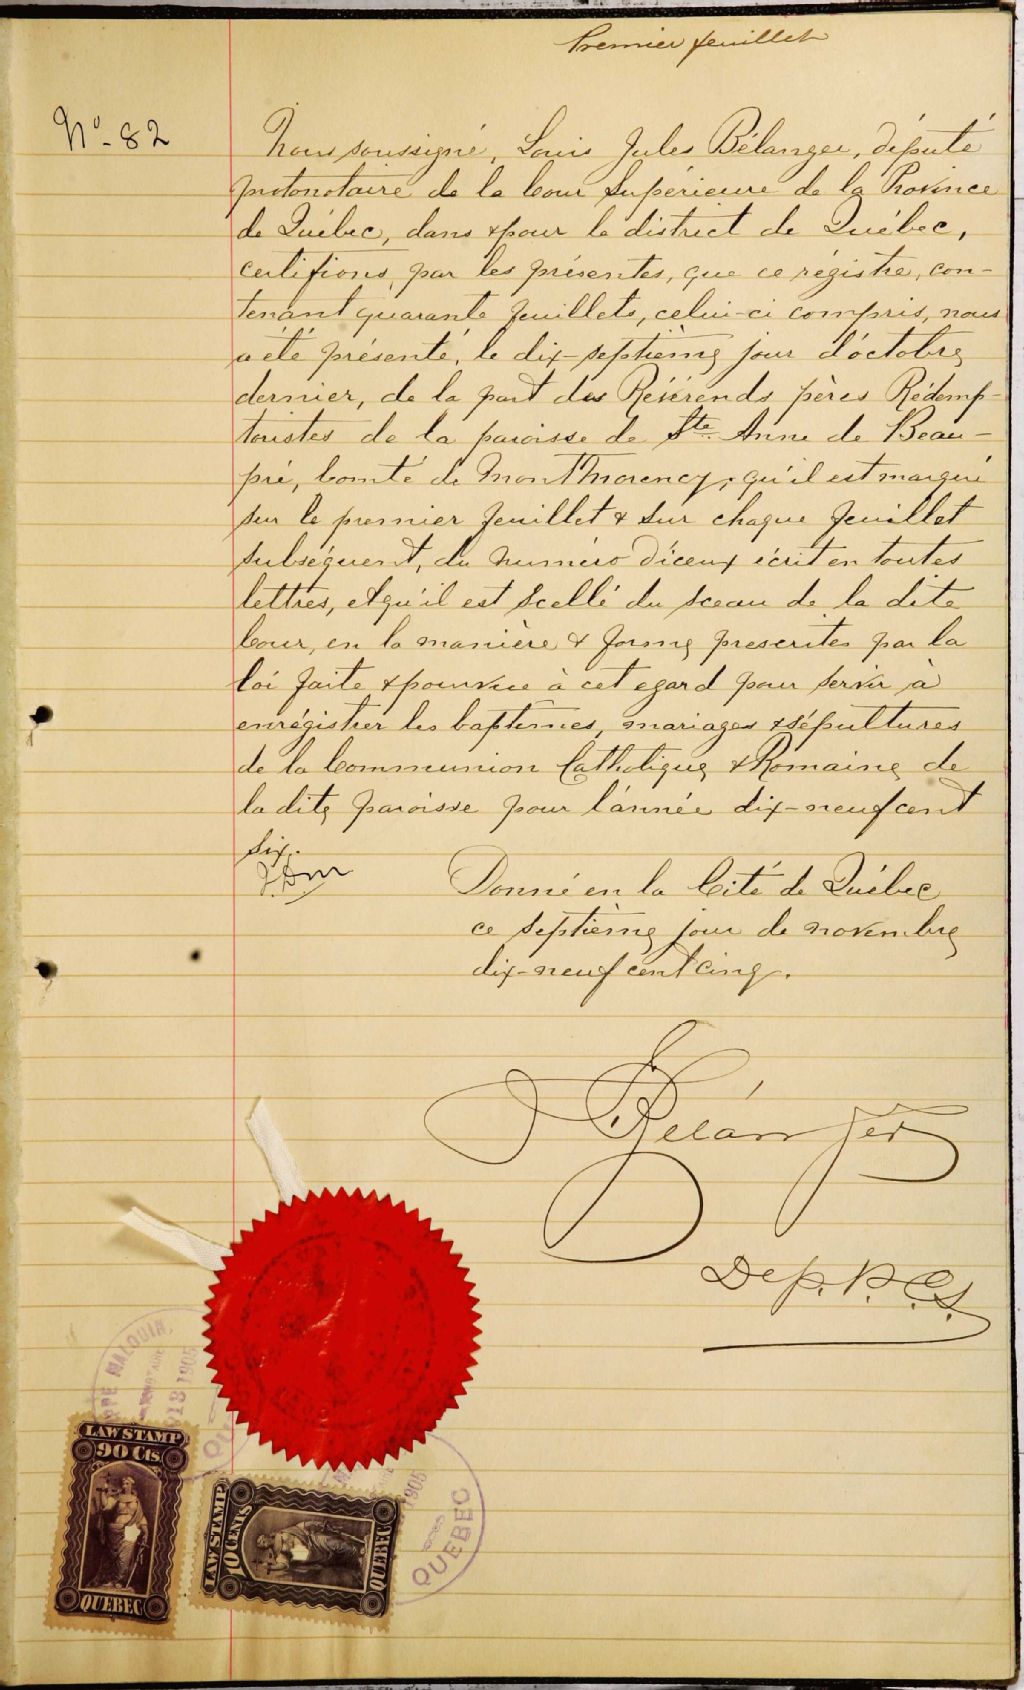 Premier feuillet
No - 82
Nous soussigné, Louis Jules Bélanger, député
protonotaire de la Cour Supérieure de la Province
de Québec, dans & pour le district de Québec,
certifions, par les présentes, que ce régistre, con-
tenant quarante feuillets, celui-ci compris, nous
a été présenté, le dix-septième jour d'octobre
dernier, de la part des Révérends pères Rédemp-
toristes de la paroisse de Ste Anne de Beau-
pré, Comté de Montmorency, qu'il est marqué
sur le premier feuillet & sur chaque feuillet
subséquent, du numéro d'iceux écrit en toutes
lettres, et qu'il est scellé du sceau de la dite
Cour, en la manière & forme prescrites par la
loi faite & pourvue à cet egard pour servir à
enrégistrer les baptêmes, mariages & sépultures
de la Communion Catholique & Romaine de
la dite paroisse pour l'année dix-neuf cent
six.
Donné en la Cité de Québec
ce septième jour de novembre
dix-neuf cent cinq.
Bélanger
Dep. P. C. S.
PPE MALOUIN,
1905
QU
LAW STAMP
90 Cts
QUEBEC
LAW STAMP
10 CENTS
QUEBEC
1905
QUEBEC